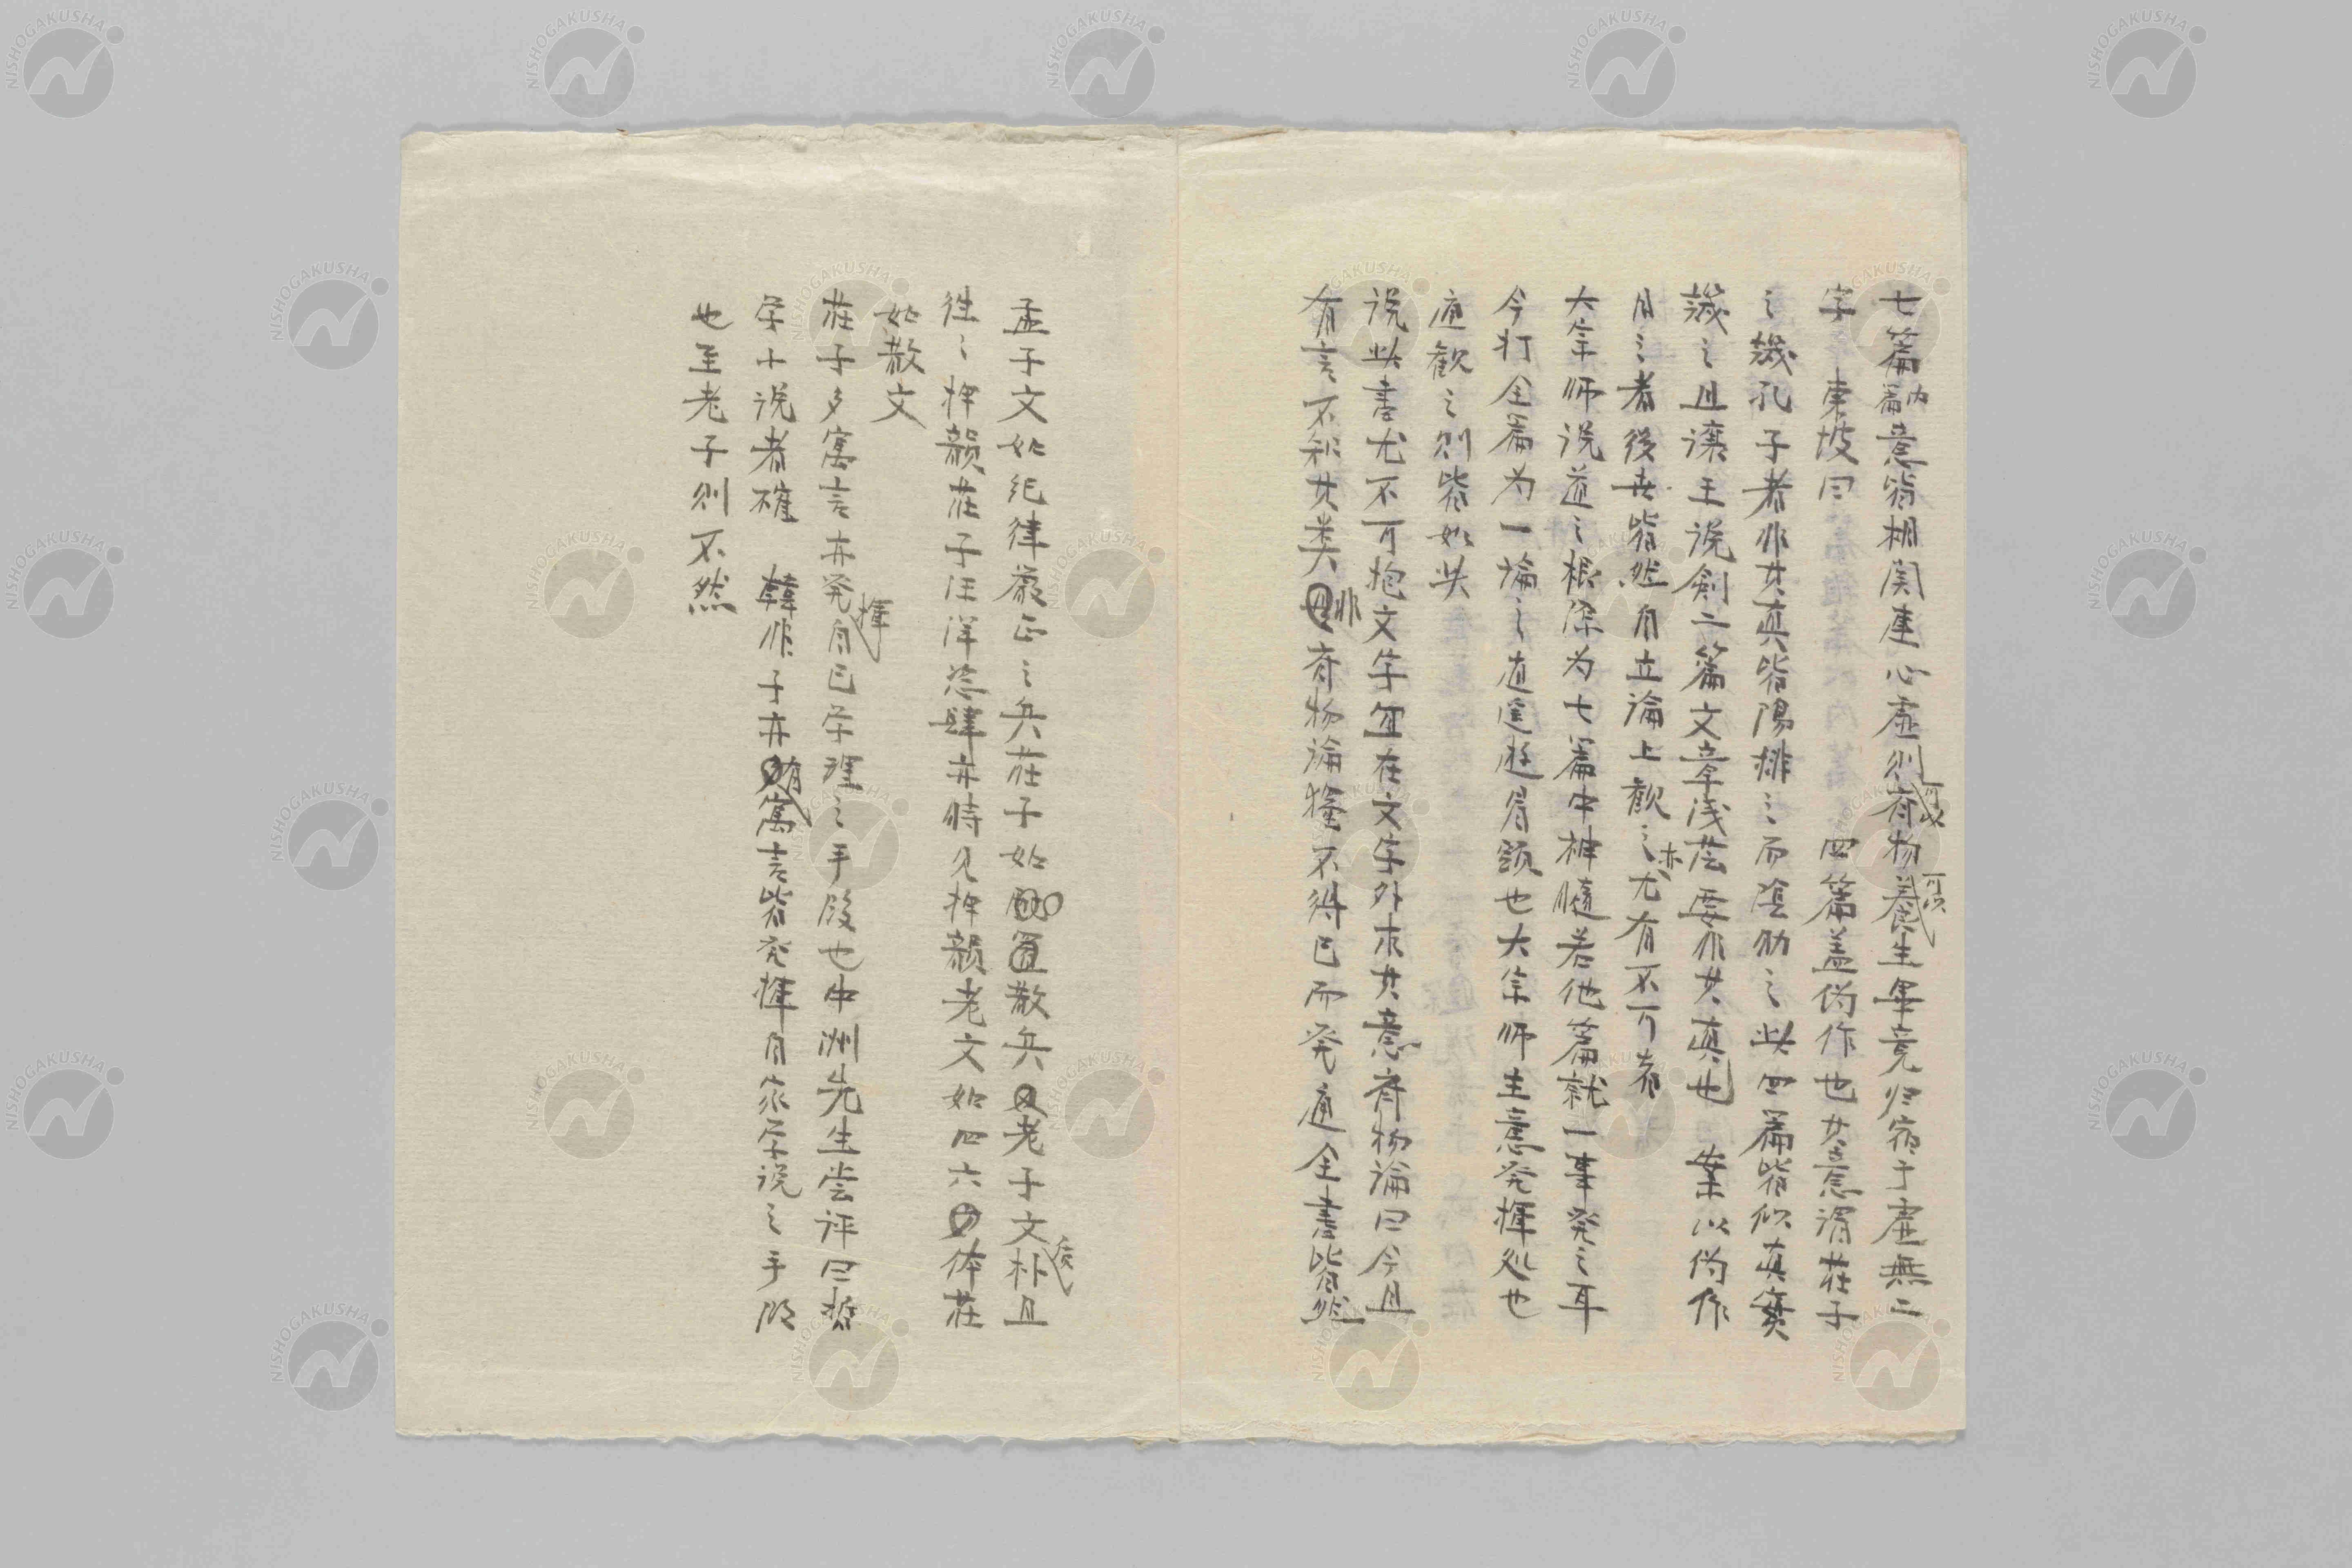 七篇内篇意皆相関連心虚則可以斉物可以養生畢竟帰宿于虚無二
字 東坡曰 四篇盖偽作也其意謂荘子
之譏孔子者非其真皆陽排之而陰助之此四篇皆似真実
譏之且譲王説剣二篇文章浅 要非其真也 案以偽作
目之者後世皆然自立論上観之亦尤有不可者
大宗师说道之根深为七篇中神髄若他篇就一事発之耳
今打全篇为一論之逍遥遊眉頭也大宗师主意発揮処也
観之則皆如此
说此書尤不可抱文字宜在文字外求其意斉物論曰今且
有言不知其类非斉物論 不得已而発 全書皆然
孟子文如紀律厳正之兵荘子如 散兵老子文朴且
往之押韻荘子汪洋恣肆亦時見押韻老文如四六体荘
如散文
荘子多寓言亦発揮自己学理之手段也中洲先生尝评曰哲
学小说者確 韓非子亦有寓言皆発揮自家学说之手段
也至老子則不然
NISHOGAKUSHA